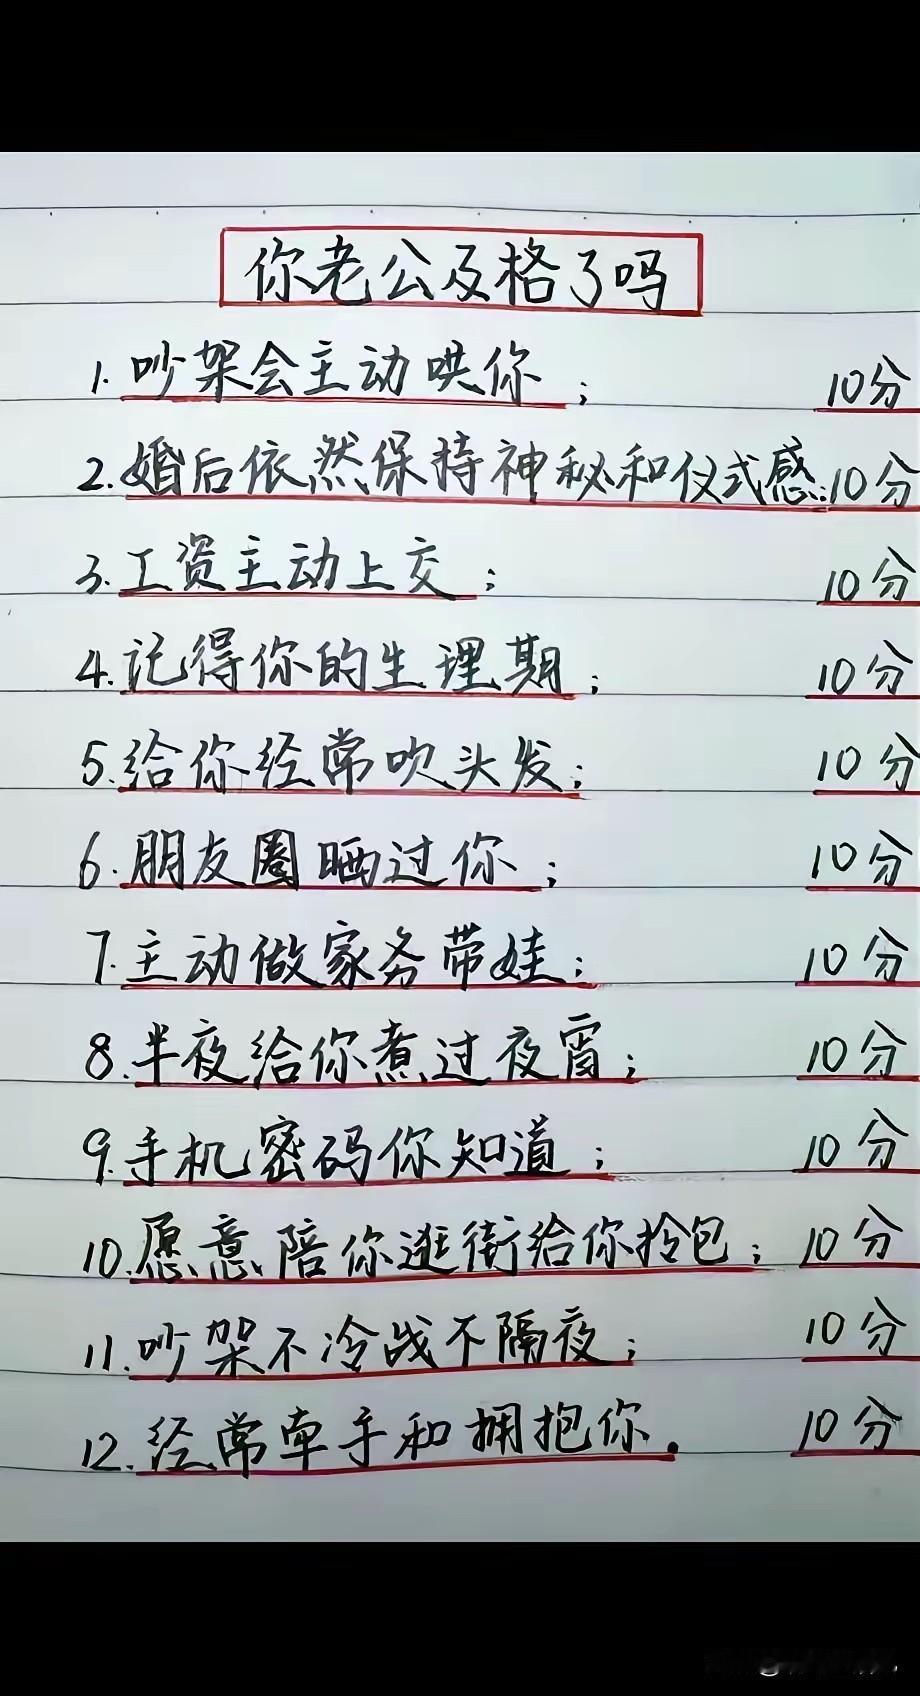 你老公及格了吗
1.吵架会主动哄你； 10分
2.婚后依然保持神秘和仪式感；10分
3.工资主动上交； 10分
4.记得你的生理期； 10分
5.给你经常吹头发； 10分
6.朋友圈晒过你； 10分
7.主动做家务带娃； 10分
8.半夜给你煮过夜宵； 10分
9.手机密码你知道； 10分
10.愿意陪你逛街给你拎包； 10分
11.吵架不冷战不隔夜； 10分
12.经常牵手和拥抱你。 10分